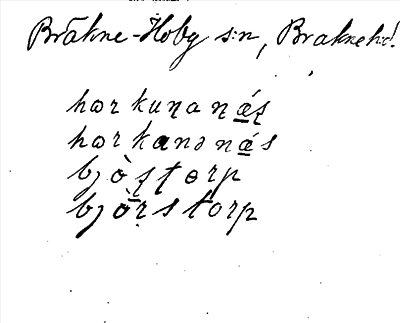 Bräkne-Hoby s:n, Bräkne hd.
hærkuꞃanáʂ
hærkanənás
bjòʂʈɵrp
bjòrstorp